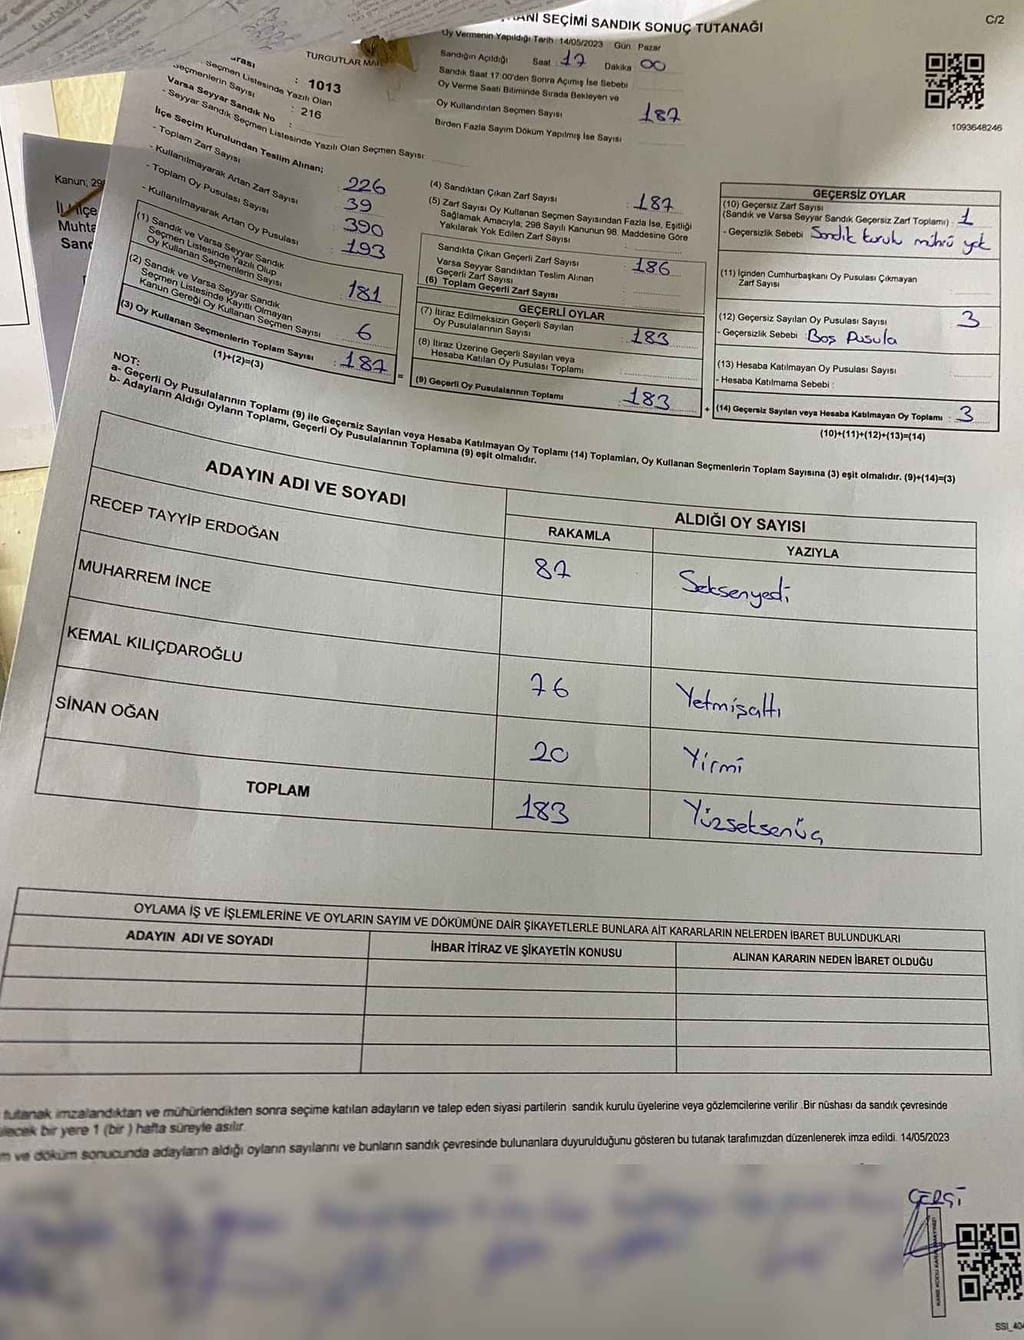 SEÇİMİ SANDIK SONUÇ TUTANAĞI
C/2
Oy Vermenin Yapıldığı Tarih : 14/05/2023 Gün Pazar
Sandığın Açıldığı Saat : 17 Dakika 00
Sandık Saat 17:00'den Sonra Açımış İse Sebebi
Oy Verme Saati Bitiminde Sırada Bekleyen ve
Oy Kullandırılan Seçmen Sayısı : 187
Birden Fazla Sayım Döküm Yapılmış İse Sayısı
1093648246
TURGUTLAR
: 1013
Seçmen Listesinde Yazılı Olan
Seçmenlerin Sayısı : 216
Varsa Seyyar Sandık No :
- Seyyar Sandık Seçmen Listesinde Yazılı Olan Seçmen Sayısı
İlçe Seçim Kurulundan Teslim Alınan;
- Toplam Zarf Sayısı : 226
- Kullanılmayarak Artan Zarf Sayısı : 39
- Toplam Oy Pusulası Sayısı : 390
- Kullanılmayarak Artan Oy Pusulası : 193
(1) Sandık ve Varsa Seyyar Sandık
Seçmen Listesinde Yazılı Olup
Oy Kullanan Seçmenlerin Sayısı : 181
(2) Sandık ve Varsa Seyyar Sandık
Seçmen Listesinde Kayıtlı Olmayan
Kanun Gereği Oy Kullanan Seçmen Sayısı : 6
(3) Oy Kullanan Seçmenlerin Toplam Sayısı : 187 =
(1)+(2)=(3)
(4) Sandıktan Çıkan Zarf Sayısı : 187
(5) Zarf Sayısı Oy Kullanan Seçmen Sayısından Fazla İse, Eşitliği
Sağlamak Amacıyla, 298 Sayılı Kanunun 98. Maddesine Göre
Yakılarak Yok Edilen Zarf Sayısı
Sandıkta Çıkan Geçerli Zarf Sayısı : 186
Varsa Seyyar Sandıktan Teslim Alınan
Geçerli Zarf Sayısı
(6) Toplam Geçerli Zarf Sayısı
GEÇERLİ OYLAR
(7) İtiraz Edilmeksizin Geçerli Sayılan
Oy Pusulalarının Sayısı : 183
(8) İtiraz Üzerine Geçerli Sayılan veya
Hesaba Katılan Oy Pusulası Toplamı
(9) Geçerli Oy Pusulalarının Toplamı : 183 +
GEÇERSİZ OYLAR
(10) Geçersiz Zarf Sayısı
(Sandık ve Varsa Seyyar Sandık Geçersiz Zarf Toplamı) : 1
- Geçersizlik Sebebi : Sandık kurulu mührü yok
(11) İçinden Cumhurbaşkanı Oy Pusulası Çıkmayan
Zarf Sayısı
(12) Geçersiz Sayılan Oy Pusulası Sayısı : 3
- Geçersizlik Sebebi : Boş Pusula
(13) Hesaba Katılmayan Oy Pusulası Sayısı
- Hesaba Katılmama Sebebi :
(14) Geçersiz Sayılan veya Hesaba Katılmayan Oy Toplamı : 3
(10)+(11)+(12)+(13)=(14)
NOT:
a- Geçerli Oy Pusulalarının Toplamı (9) ile Geçersiz Sayılan veya Hesaba Katılmayan Oy Toplamı (14) Toplamları, Oy Kullanan Seçmenlerin Toplam Sayısına (3) eşit olmalıdır. (9)+(14)=(3)
b- Adayların Aldığı Oyların Toplamı, Geçerli Oy Pusulalarının Toplamına (9) eşit olmalıdır.
ADAYIN ADI VE SOYADI
ALDIĞI OY SAYISI
RAKAMLA YAZIYLA
RECEP TAYYİP ERDOĞAN 87 Seksenyedi
MUHARREM İNCE
KEMAL KILIÇDAROĞLU 76 Yetmişaltı
SİNAN OĞAN 20 Yirmi
TOPLAM 183 Yüzseksenüç
OYLAMA İŞ VE İŞLEMLERİNE VE OYLARIN SAYIM VE DÖKÜMÜNE DAİR ŞİKAYETLERLE BUNLARA AİT KARARLARIN NELERDEN İBARET BULUNDUKLARI
ADAYIN ADI VE SOYADI İHBAR İTİRAZ VE ŞİKAYETİN KONUSU ALINAN KARARIN NEDEN İBARET OLDUĞU
tutanak imzalandıktan ve mühürlendikten sonra seçime katılan adayların ve talep eden siyasi partilerin sandık kurulu üyelerine veya gözlemcilerine verilir .Bir nüshası da sandık çevresinde
bir yere 1 (bir ) hafta süreyle asılır.
ve döküm sonucunda adayların aldığı oyların sayılarını ve bunların sandık çevresinde bulunanlara duyurulduğunu gösteren bu tutanak tarafımızdan düzenlenerek imza edildi. 14/05/2023
Kanun; 29
İl / İlçe
Muhta
Sand